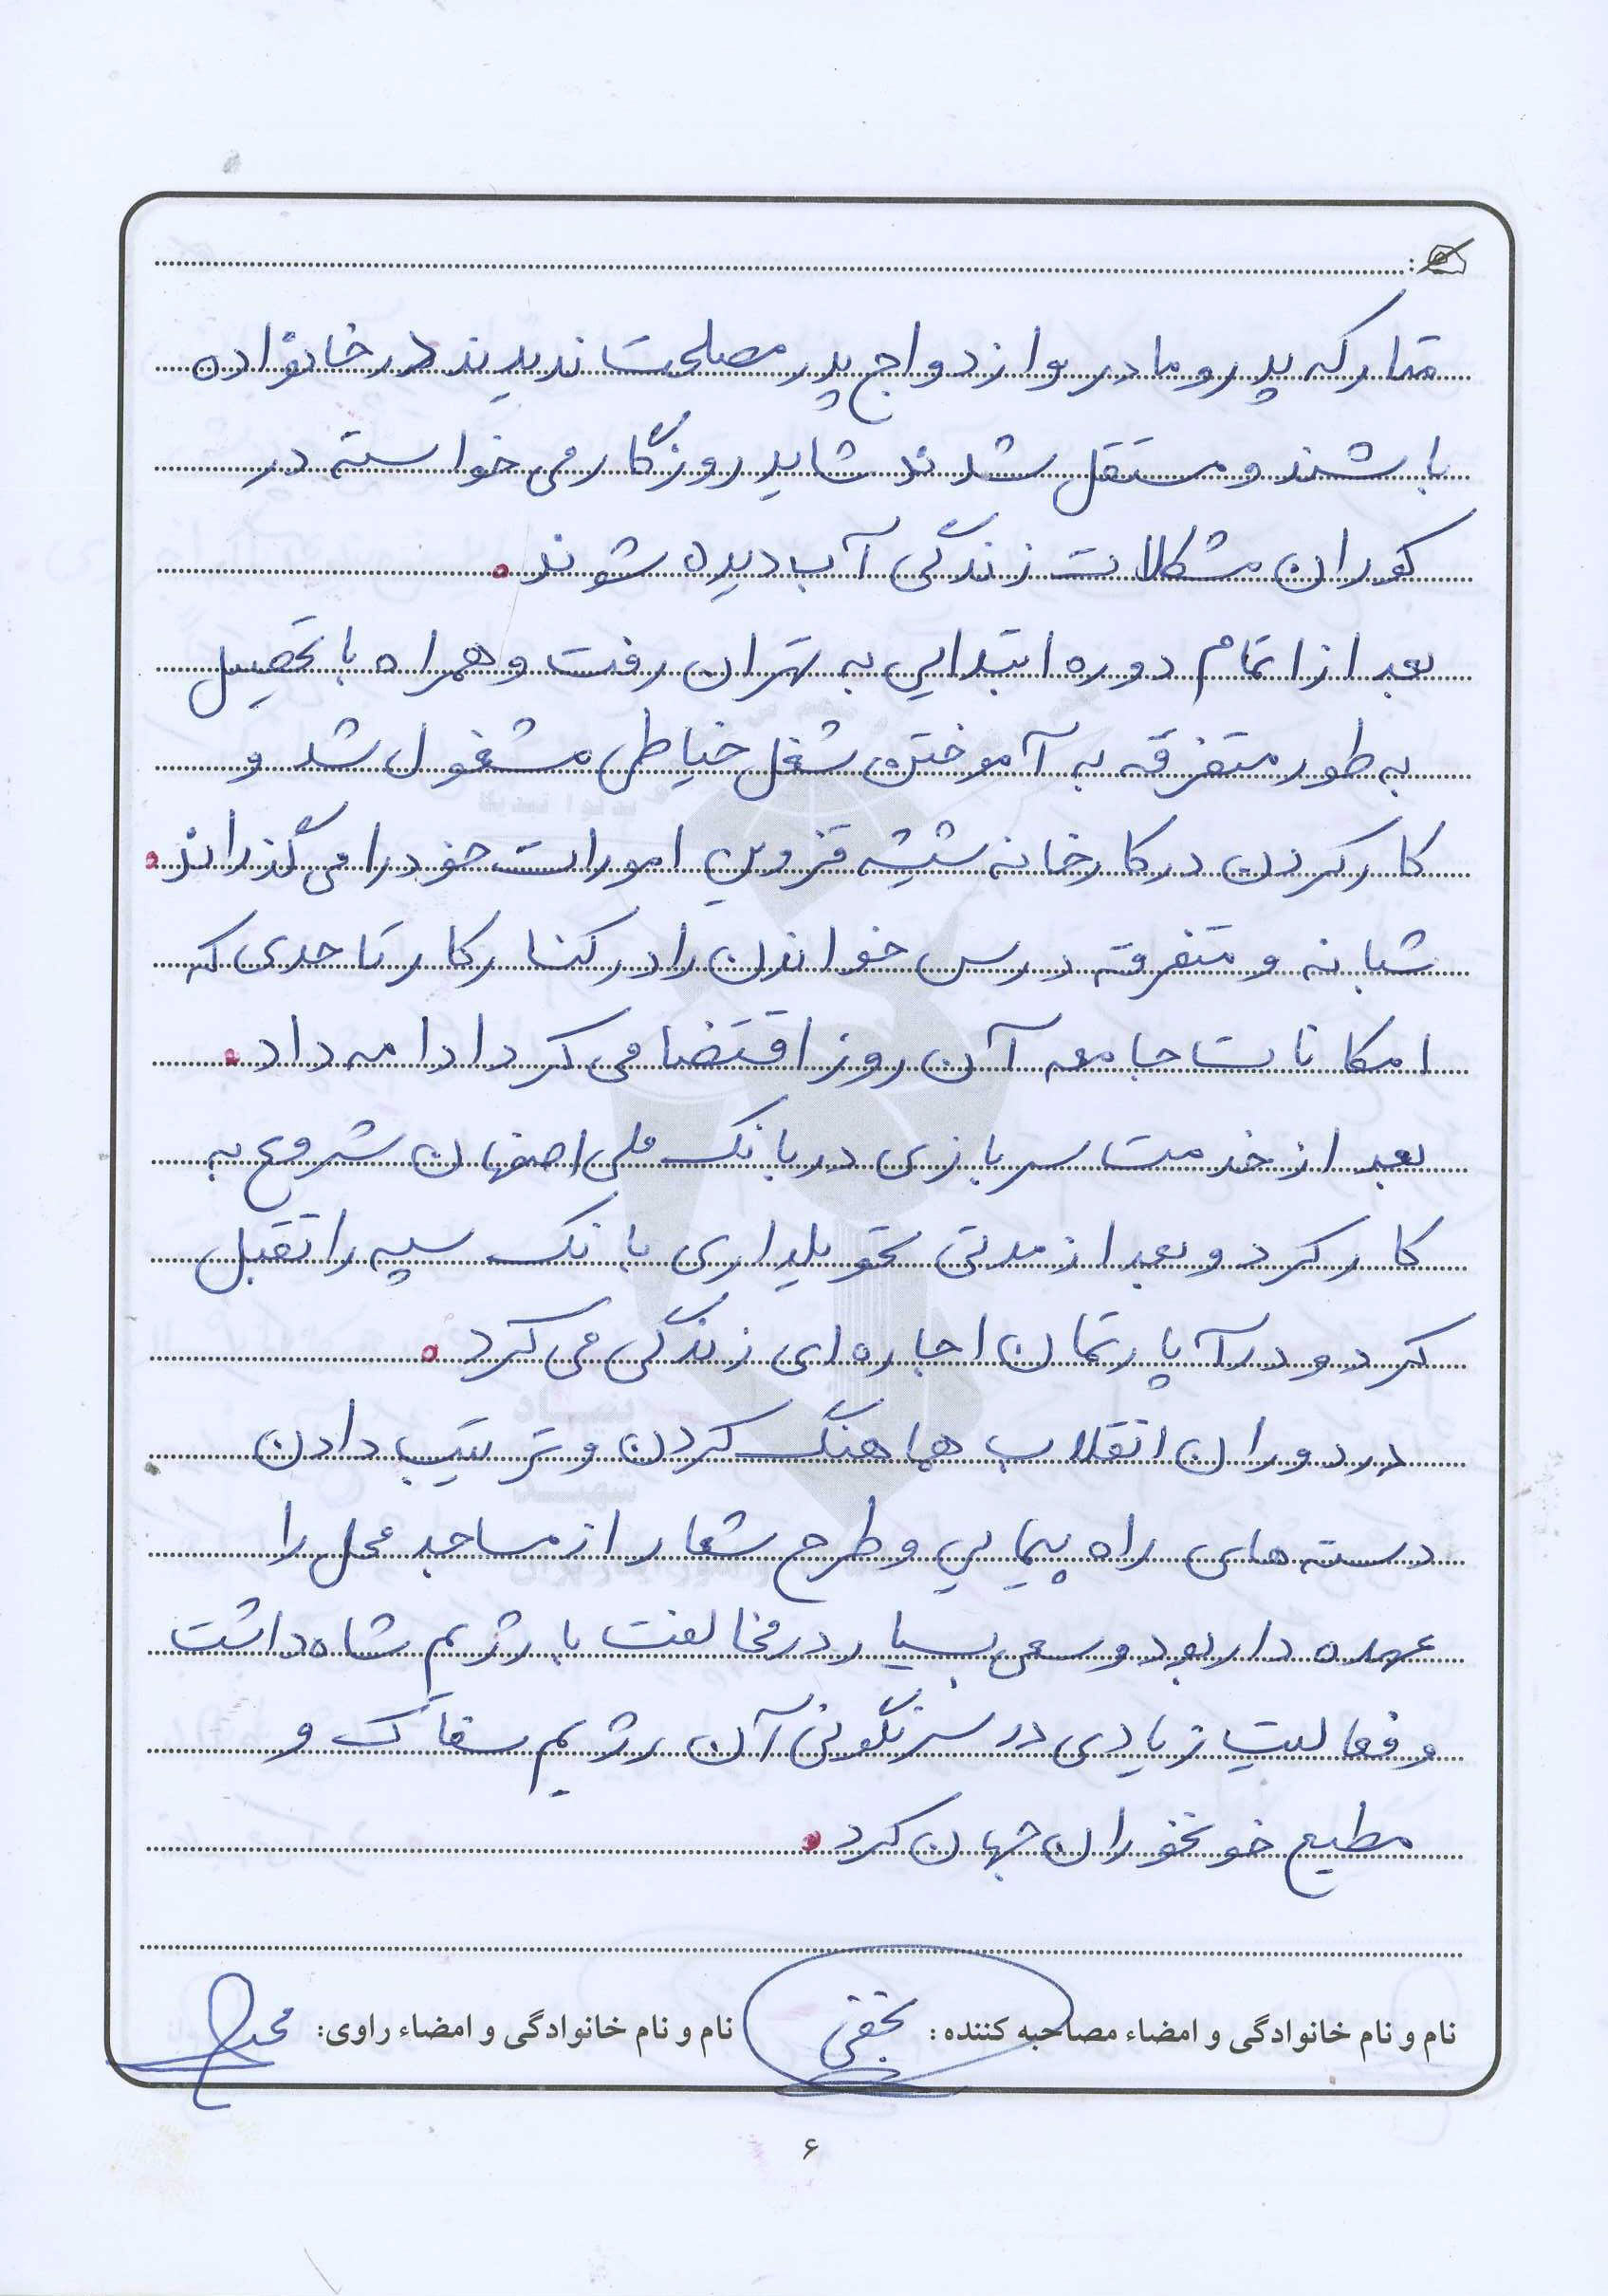 متارکه پدر و مادر و ازدواج پدر مصلحت ندیدند در خانواده
باشند و مستقل شدند شاید روزگار می خواسته در
کوران مشکلات زندگی آب دیده شوند.
بعد از اتمام دوره ابتدایی به تهران رفت و همراه با تحصیل
به طور متفرقه به آموختن شغل خیاطی مشغول شد و
کار کردن در کارخانه شیشه قزوین امورات خود را می گذراند.
شبانه و متفرقه درس خواندن را در کنار کار تا حدی که
امکانات جامعه آن روز اقتضا می کرد ادامه داد.
بعد از خدمت سربازی در بانک ملی اصفهان شروع به
کار کرد و بعد از مدتی تحویلداری بانک سپه را تقبل
کرد و در آپارتمان اجاره ای زندگی می کرد.
در دوران انقلاب هماهنگ کردن و ترتیب دادن
دسته های راه پیمایی و طرح شعار از مساجد محل را
عهده دار بود و سعی بسیار در مخالفت با رژیم شاه داشت
و فعالیت زیادی در سرنگونی آن رژیم سفاک و
مطیع خونخوران جهان کرد.
نام و نام خانوادگی و امضاء مصاحبه کننده: نام و نام خانوادگی و امضاء راوی:
۶